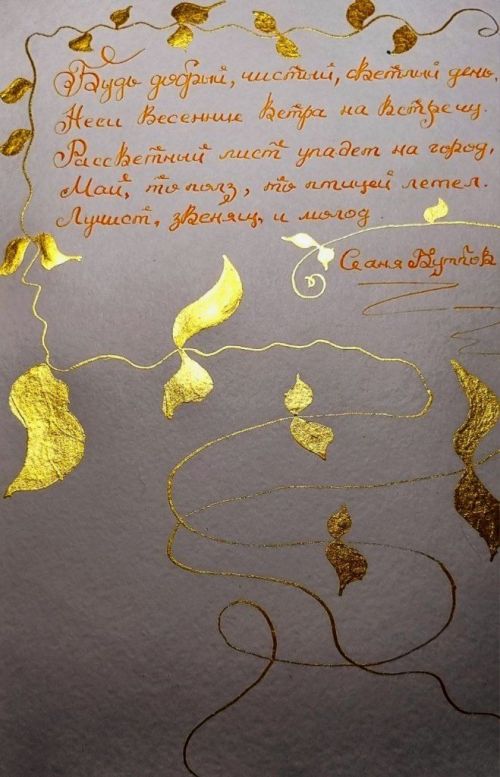 Будь добрый, чистый, светлый день.
Неси весенние ветра на встречу.
Рассветный лист упадет на город,
Май, то полз, то птицей летел.
Лучист, звенящ, и молод.
Саня Бутов